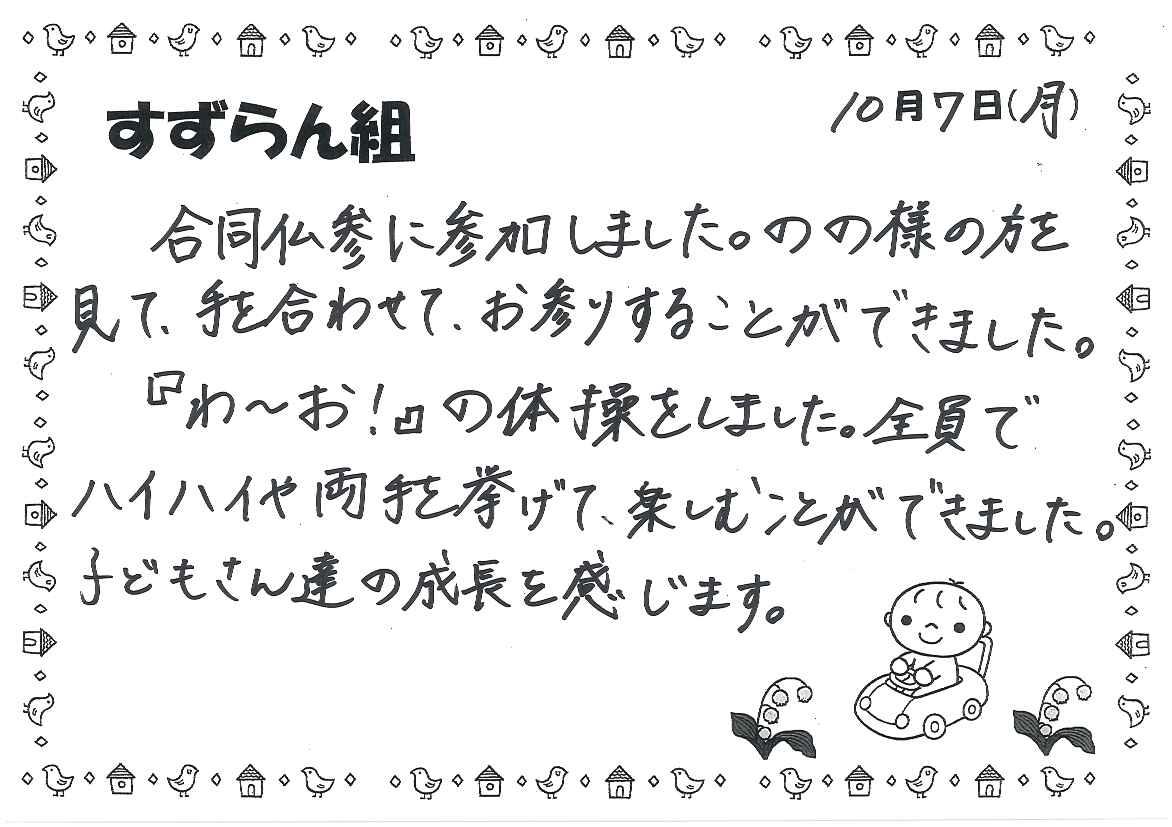 すずらん組
10月7日(月)
合同仏参に参加しました。のの様の方を
見て、手を合わせて、お参りすることができました。
『わ〜お！』の体操をしました。全員で
ハイハイや両手を挙げて、楽しむことができました。
子どもさん達の成長を感じます。